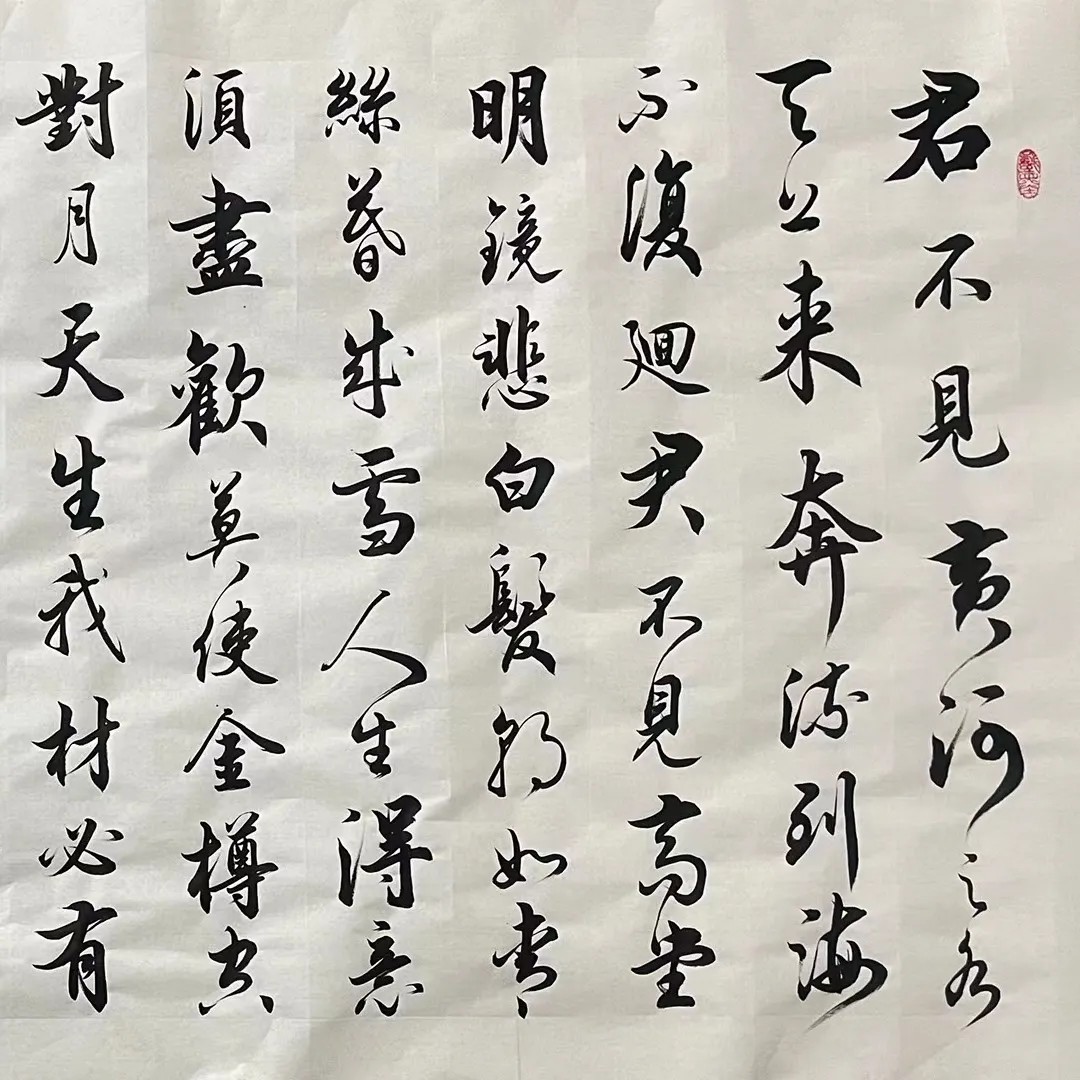 君不見黃河之水
天上来奔流到海
不復迴君不見高堂
明鏡悲白髮朝如青
絲暮成雪人生得意
須盡歡莫使金樽空
對月天生我材必有